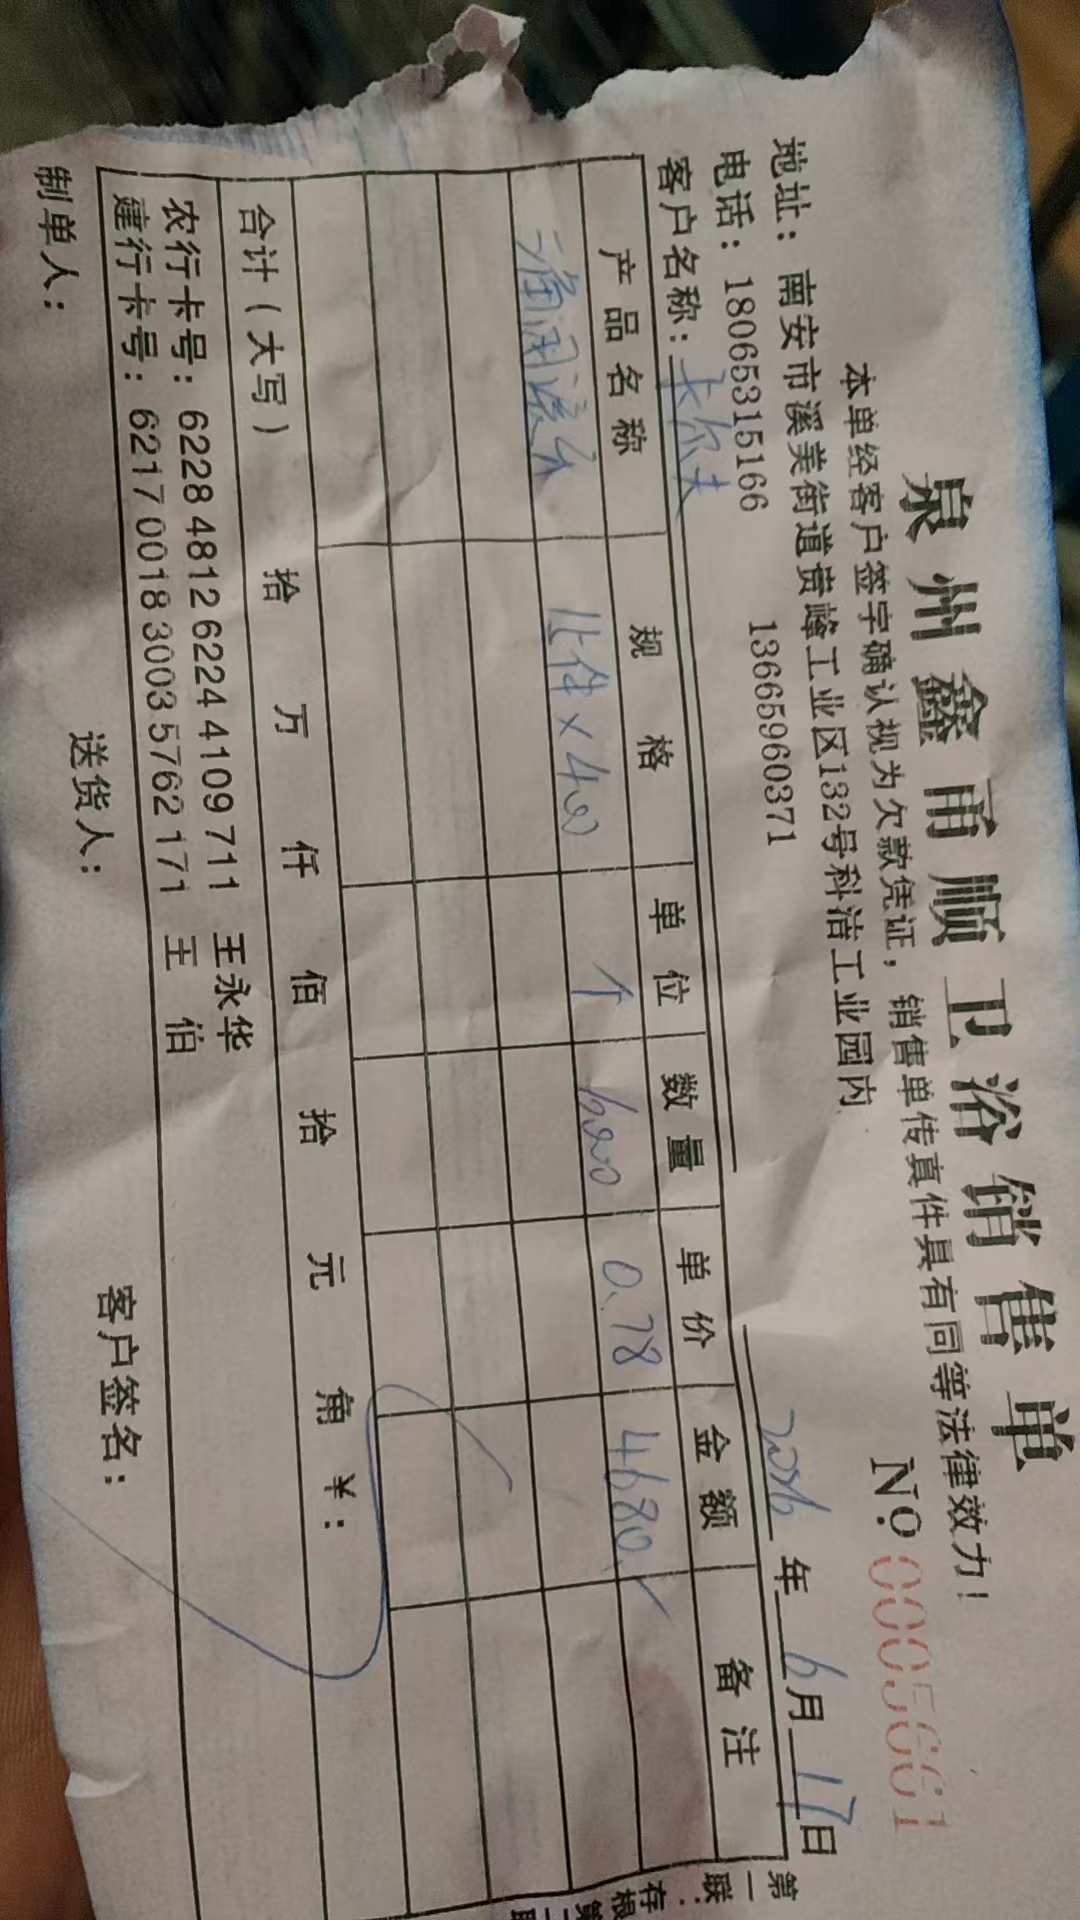 泉州鑫甬顺卫浴销售单
本单经客户签字确认视为欠款凭证，销售单传真件具有同等法律效力！
地址：南安市溪美街道贵峰工业区132号科洁工业园内
电话：18065315166 13665960371
No. 0005661
客户名称：卡尔夫 年 6月17日
产品名称 规格 单位 数量 单价 金额 备注
15件×400 个 6000 0.78 4680.
合计（大写） 拾 万 仟 佰 拾 元 角 ¥：
农行卡号：6228 4812 6224 4109 711 王永华
建行卡号：6217 0018 3003 5762 171 王 伯
制单人： 送货人： 客户签名：
第一联：存根